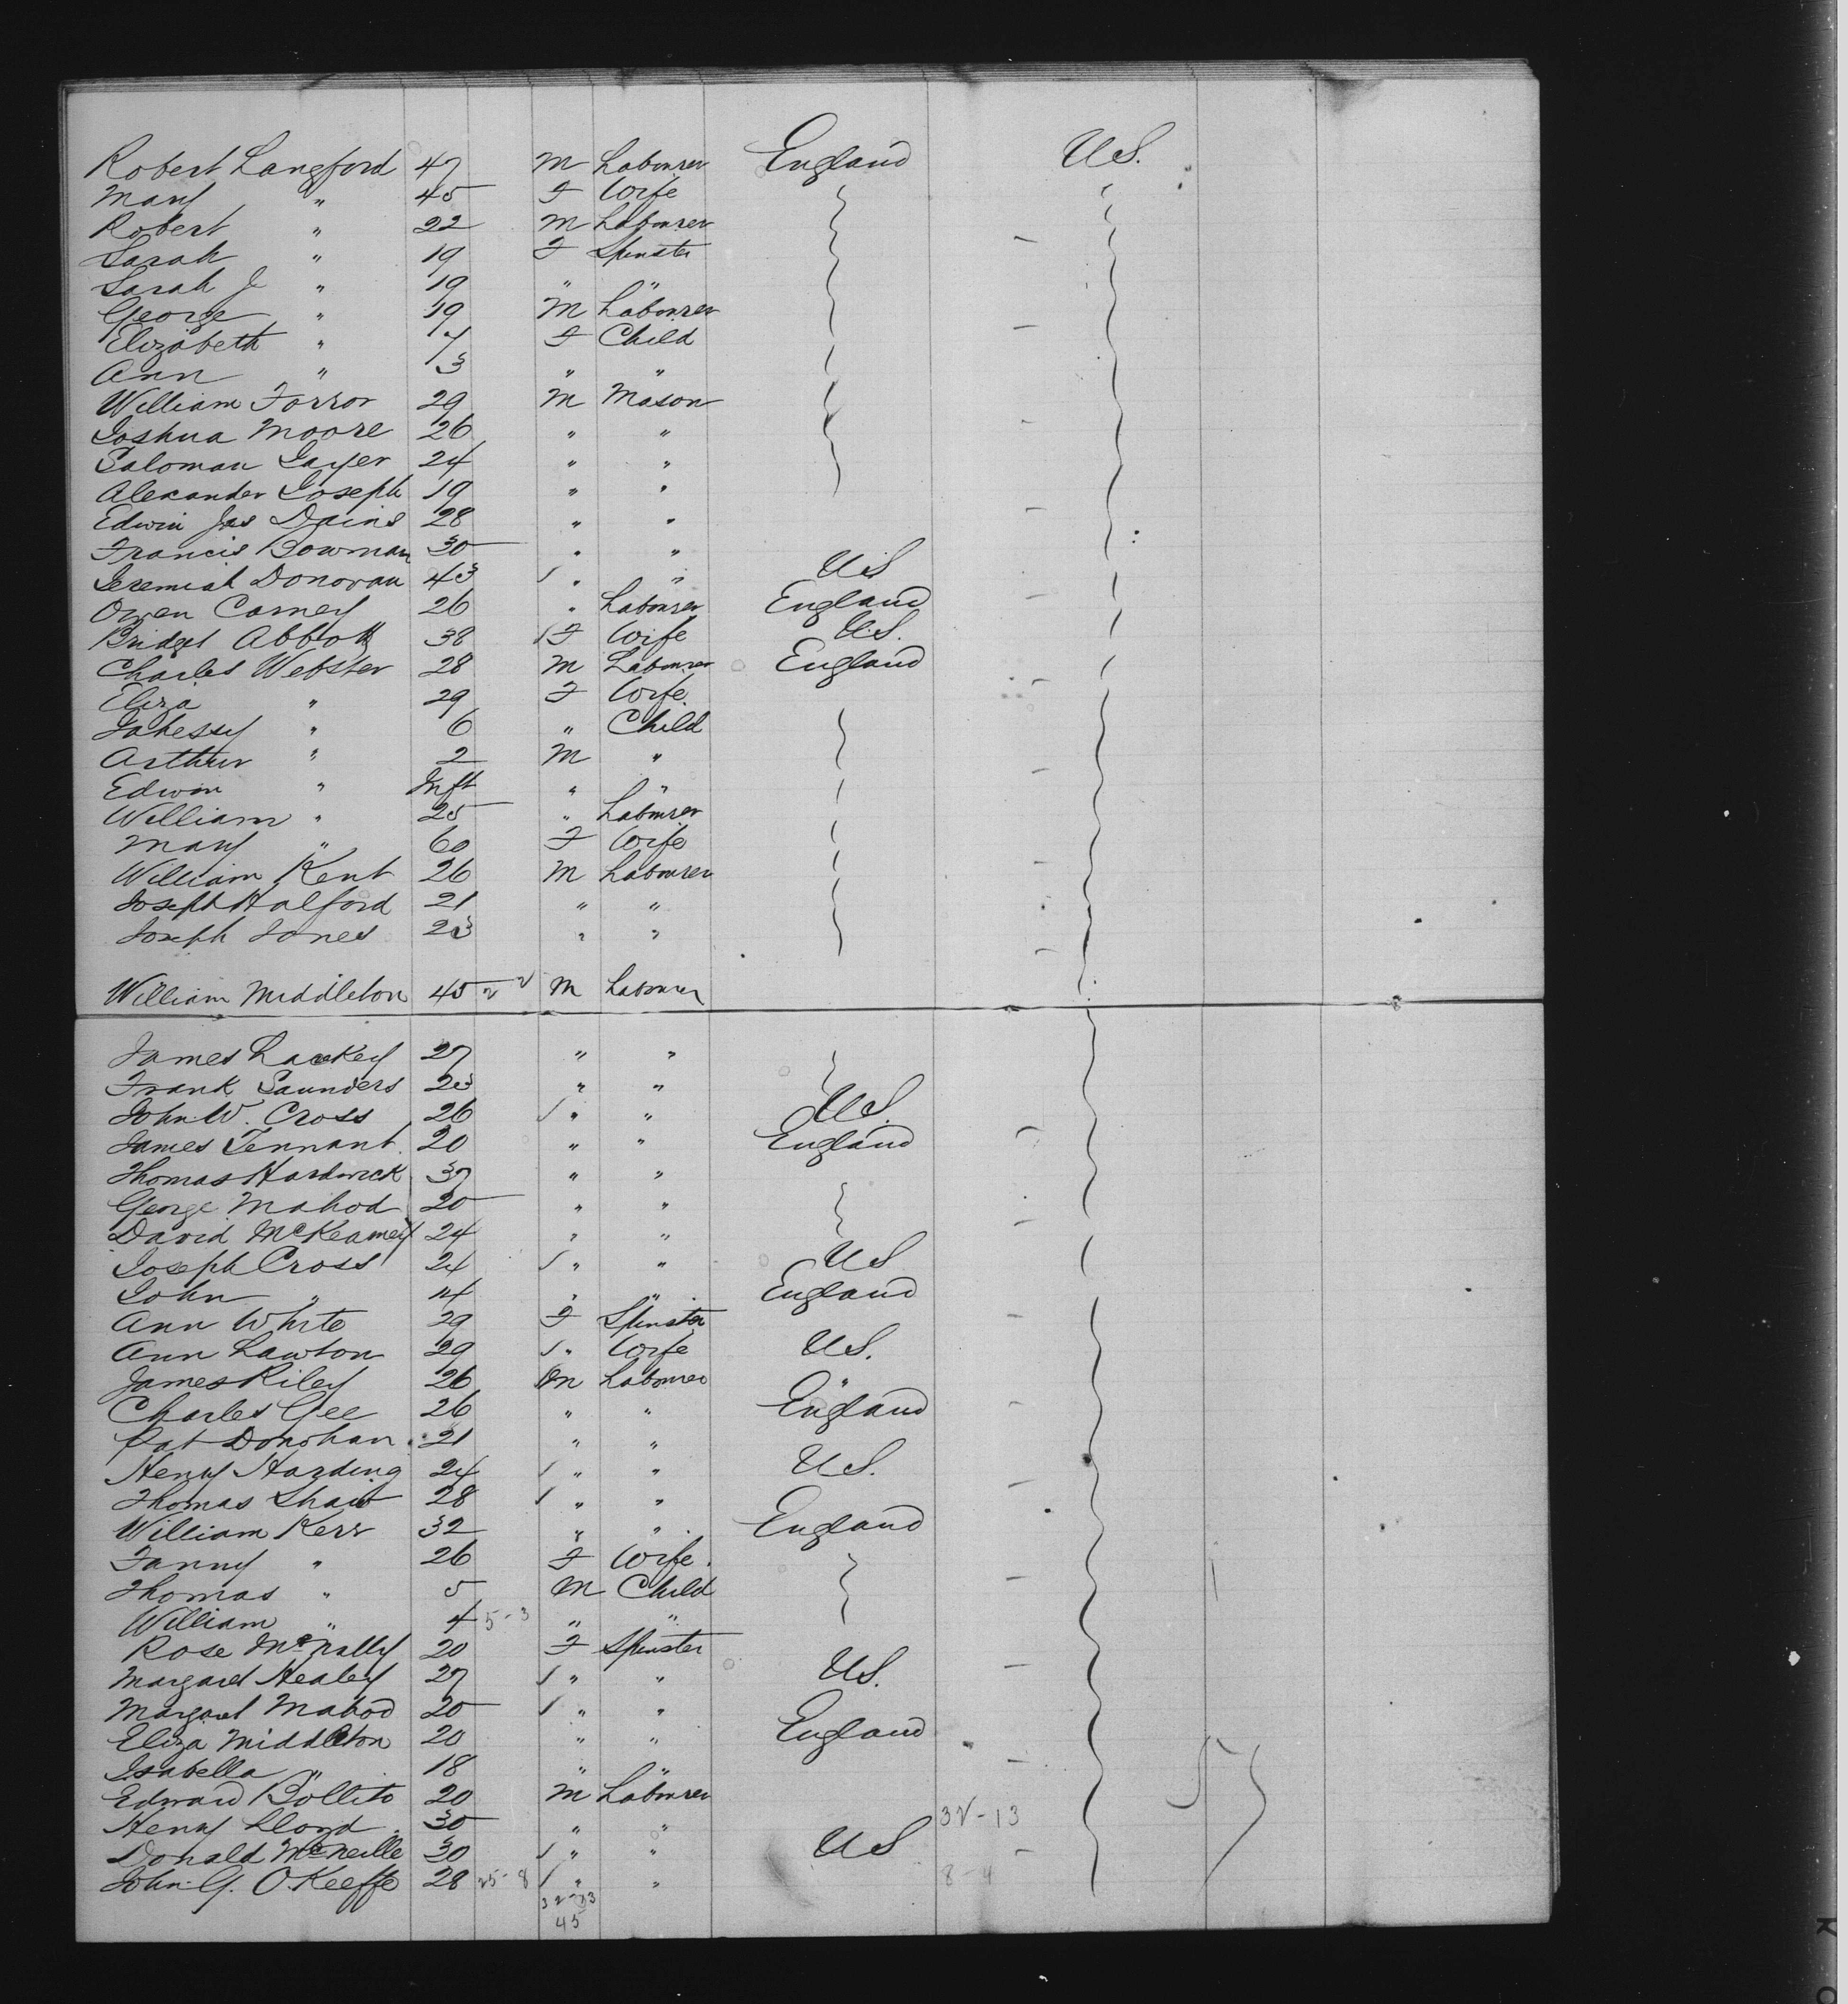 Robert Langford 47 M Labourer England U.S.
Mary " 45 F Wife
Robert " 22 M Labourer
Sarah " 19 F Spinster
Sarah J " 19 " "
George " 19 M Labourer
Elizabeth " 7 F Child
Ann " 3 " "
William Forror 29 M Mason
Joshua Moore 26 " "
Saloman Sayer 24 " "
Alexander Joseph 19 " "
Edwin Jas Dains 28 " "
Francis Bowman 30 " "
Jeremiah Donovan 43 " " U.S
Owen Carney 26 " Labourer England
Bridget Abbott 38 F Wife U.S.
Charles Webster 28 M Labourer England
Eliza " 29 F Wife
" 6 " Child
Arthur " 2 M "
Edwin " Inft " "
William " 25 " Labourer
Mary " 60 F Wife
William Kent 26 M Labourer
Joseph Halford 21 " "
Joseph Jones 23 " "
William Middleton 45 M Labourer
James Lackey 27 " "
Frank Saunders 23 " "
John W. Cross 26 " " U.S.
James Tennant 20 " " England
Thomas Hardwick 37 " "
George Mahod 20 " "
David McKeamey 24 " "
Joseph Cross 24 " " U S
John " 14 " " England
Ann White 29 F Spinster
Ann Lawton 29 " Wife U.S.
James Riley 26 M Labourer "
Charles Gee 26 " " England
Pat Donohan 21 " "
Henry Harding 24 " " U.S.
Thomas Shaw 28 " "
William Kerr 32 " " England
Fanny " 26 F Wife
Thomas " 5 M Child
William " 4 5-3 " "
Rose McNally 20 F Spinster
Margaret Healey 27 " " U.S.
Margaret Mahod 20 " "
Eliza Middleton 20 " " England
Isabella " 18 " "
Edward Bollito 20 M Labourer
Henry Lloyd 30 " " 32-13
Donald McNeille 30 " " U S
John G. O'Keeffe 28 25-8 " " 8-4
32-13
45
57